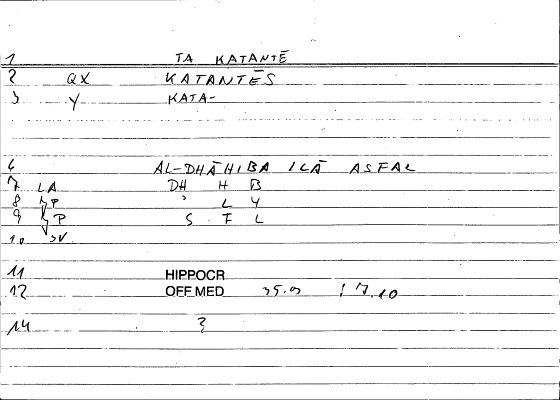 1 TA KATANTĒ
2 QX KATANTĒS
3 Y KATA-
6 AL-DHĀHIBA ILĀ ASFAL
7 LA DH H B
8 P ʾ L Y
9 P S F L
10 SV
11 HIPPOCR
12 OFF MED 35.9 17.10
14 ?